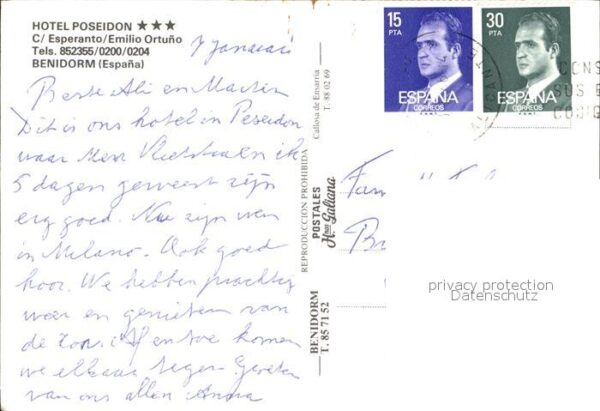 HOTEL POSEIDON ★★★
C/ Esperanto/Emilio Ortuño
Tels. 852355/0200/0204
BENIDORM (España)
7 Januari
Beste Ali en Martin
Dit is ons hotel in Poseidon
waar Mevr en ik
5 dagen geweest zijn
erg goed. Nu zijn we
in Milano. Ook goed
hoor. We hebben prachtig
weer en genieten van
de zon. Af en toe komen
we elkaar tegen. Groeten
van ons allen Anna
BENIDORM
T. 85 71 52
POSTALES
Hnos Galiana
REPRODUCCION PROHIBIDA
Callosa de Ensarria
T. 88 02 69
15
PTA
ESPAÑA
CORREOS
30
PTA
ESPAÑA
CORREOS
CONS
SUS E
CODIG
Fam
privacy protection
Datenschutz